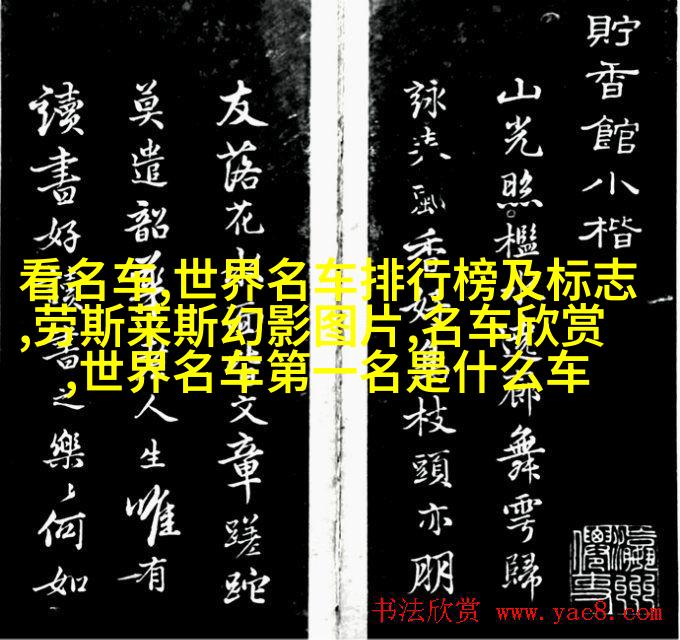 貯香館小楷
山光照檻遶廊舞雩歸
詠春風香好鳥枝頭亦朋
友落花水面皆文章蹉跎
莫遣韶華人生唯有
讀書好讀書之樂〻何如
看名车,世界名车排行榜及标志
,劳斯莱斯幻影图片,名车欣赏
,世界名车第一名是什么车
书法欣赏 www.yac8.com